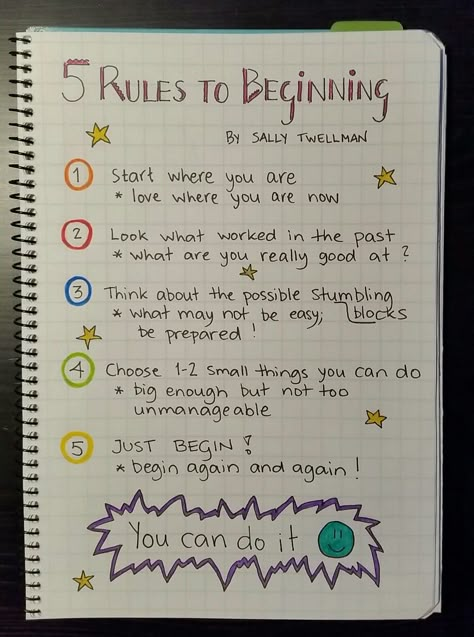 5 RULES TO BEGINNING
BY SALLY TWELLMAN
1 Start where you are
* love where you are now
2 Look what worked in the past
* what are you really good at ?
3 Think about the possible stumbling
blocks
* what may not be easy;
be prepared !
4 Choose 1-2 small things you can do
* big enough but not too
unmanageable
5 JUST BEGIN !
* begin again and again !
You can do it